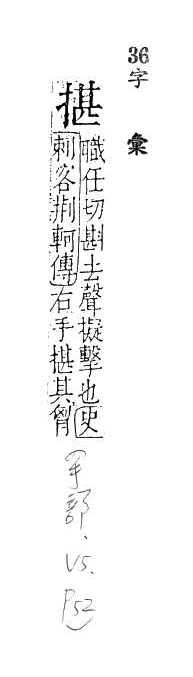 36字彙
揕
職任切斟去聲擬擊也史
刺客荆軻傳右手揕其胷
(手部、V5、P52)